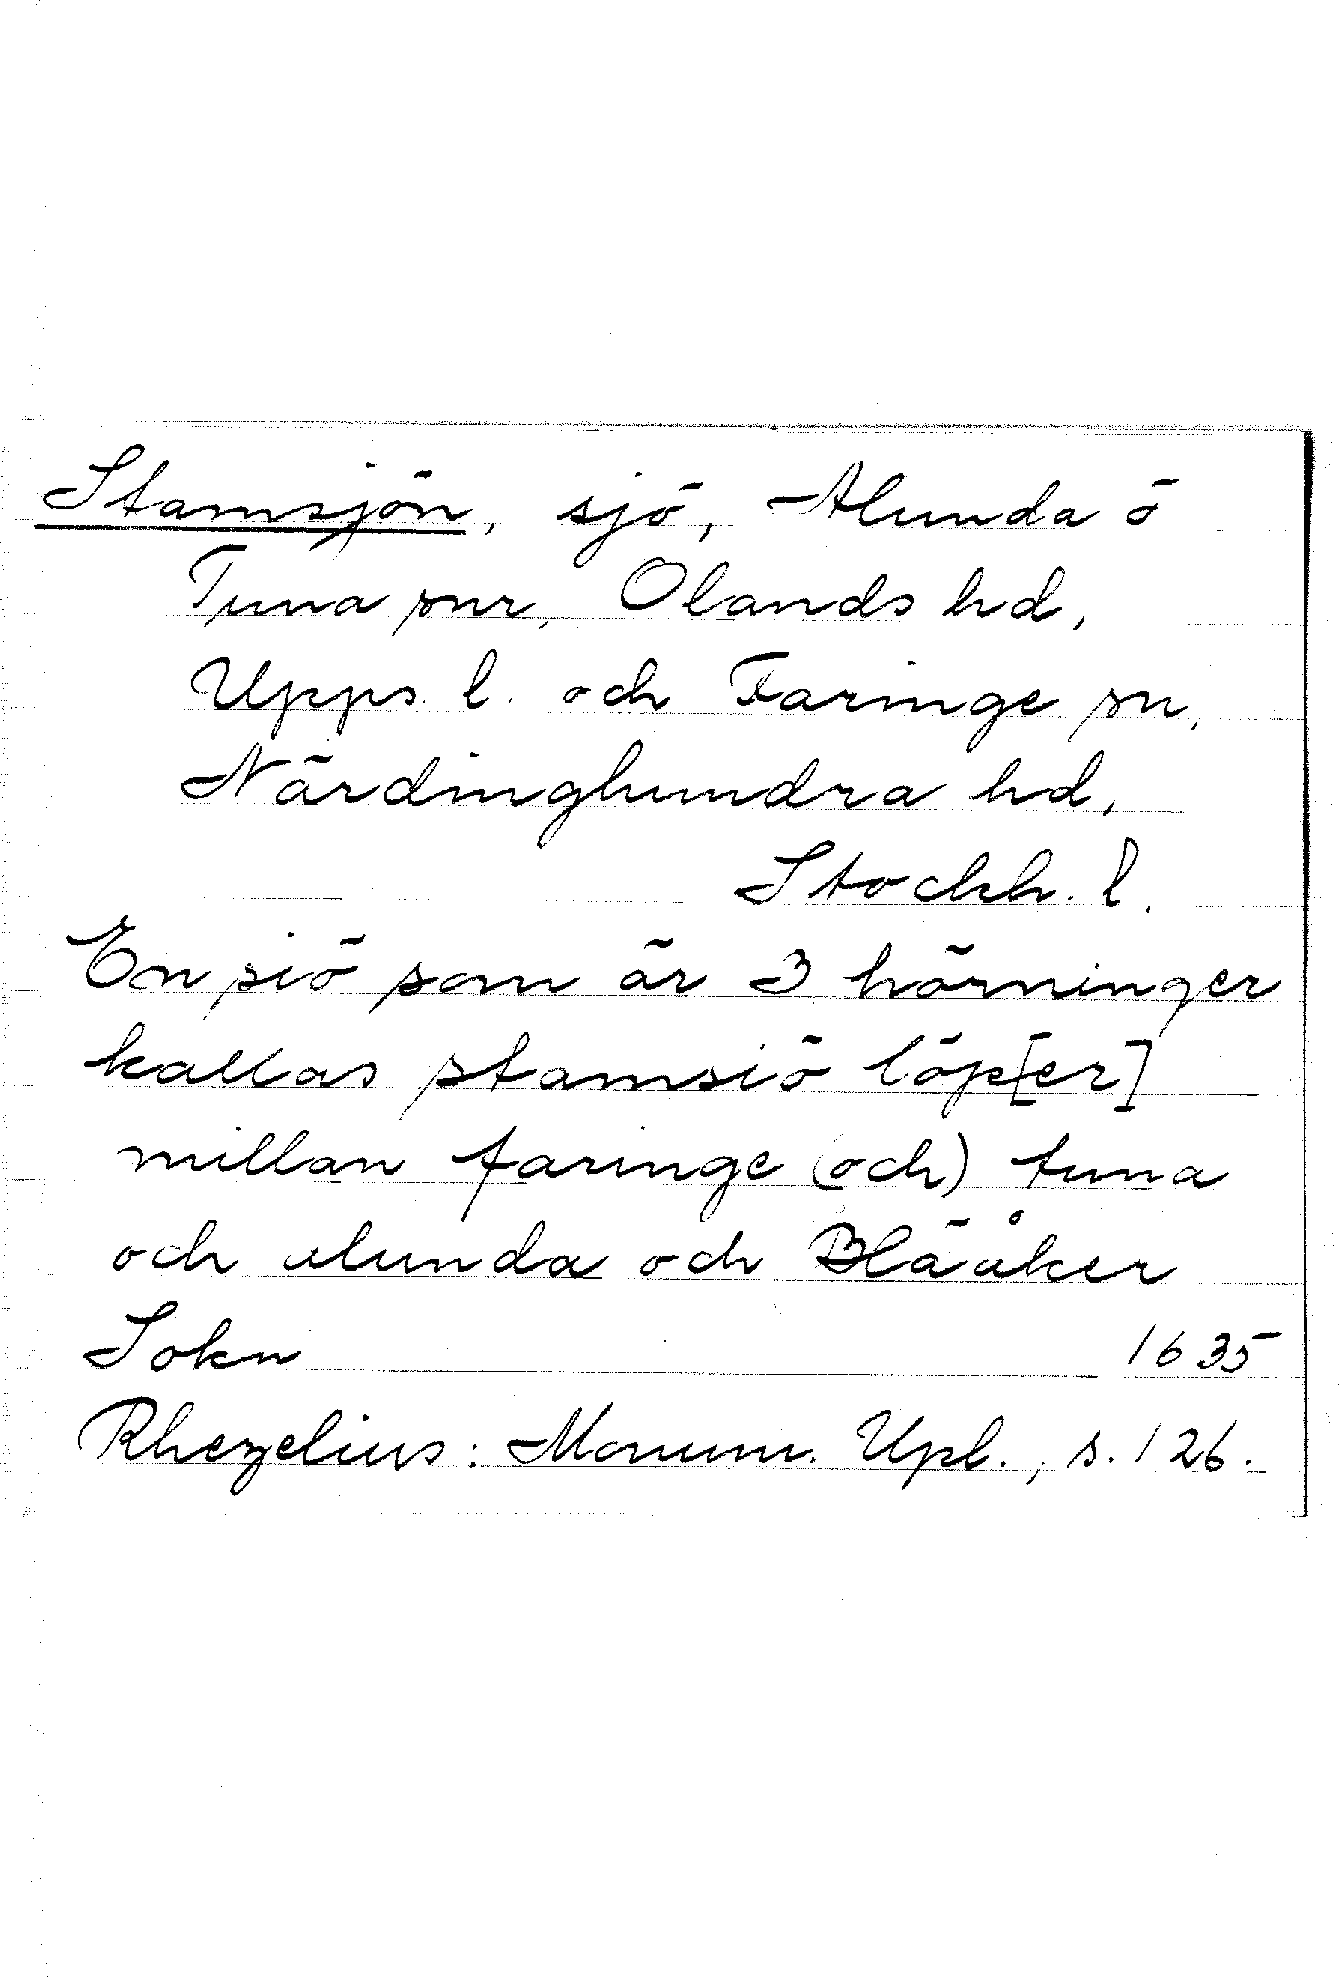 Stamsjön, sjö, Alunda o
Tuna snr, Olands hd,
Upps. l. och Faringe sn,
Närdinghundra hd,
Stockh. l.
En siö som är 3 hörninger
kallas stamsiö löp[er]
millan faringe (och) tuna
och alunda och Bläåker
Sokn 1635
Rhezelius: Monum. Upl., s. 126.